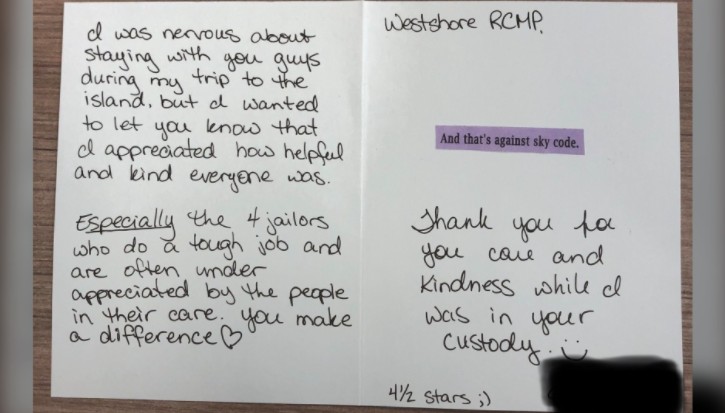 I was nervous about
staying with you guys
during my trip to the
island, but I wanted
to let you know that
I appreciated how helpful
and kind everyone was.
Especially the 4 jailors
who do a tough job and
are often under
appreciated by the people
in their care. You make
a difference♡
Westshore RCMP.
And that's against sky code.
Thank you for
you care and
kindness while I
was in your
custody. :)
4½ stars ;)